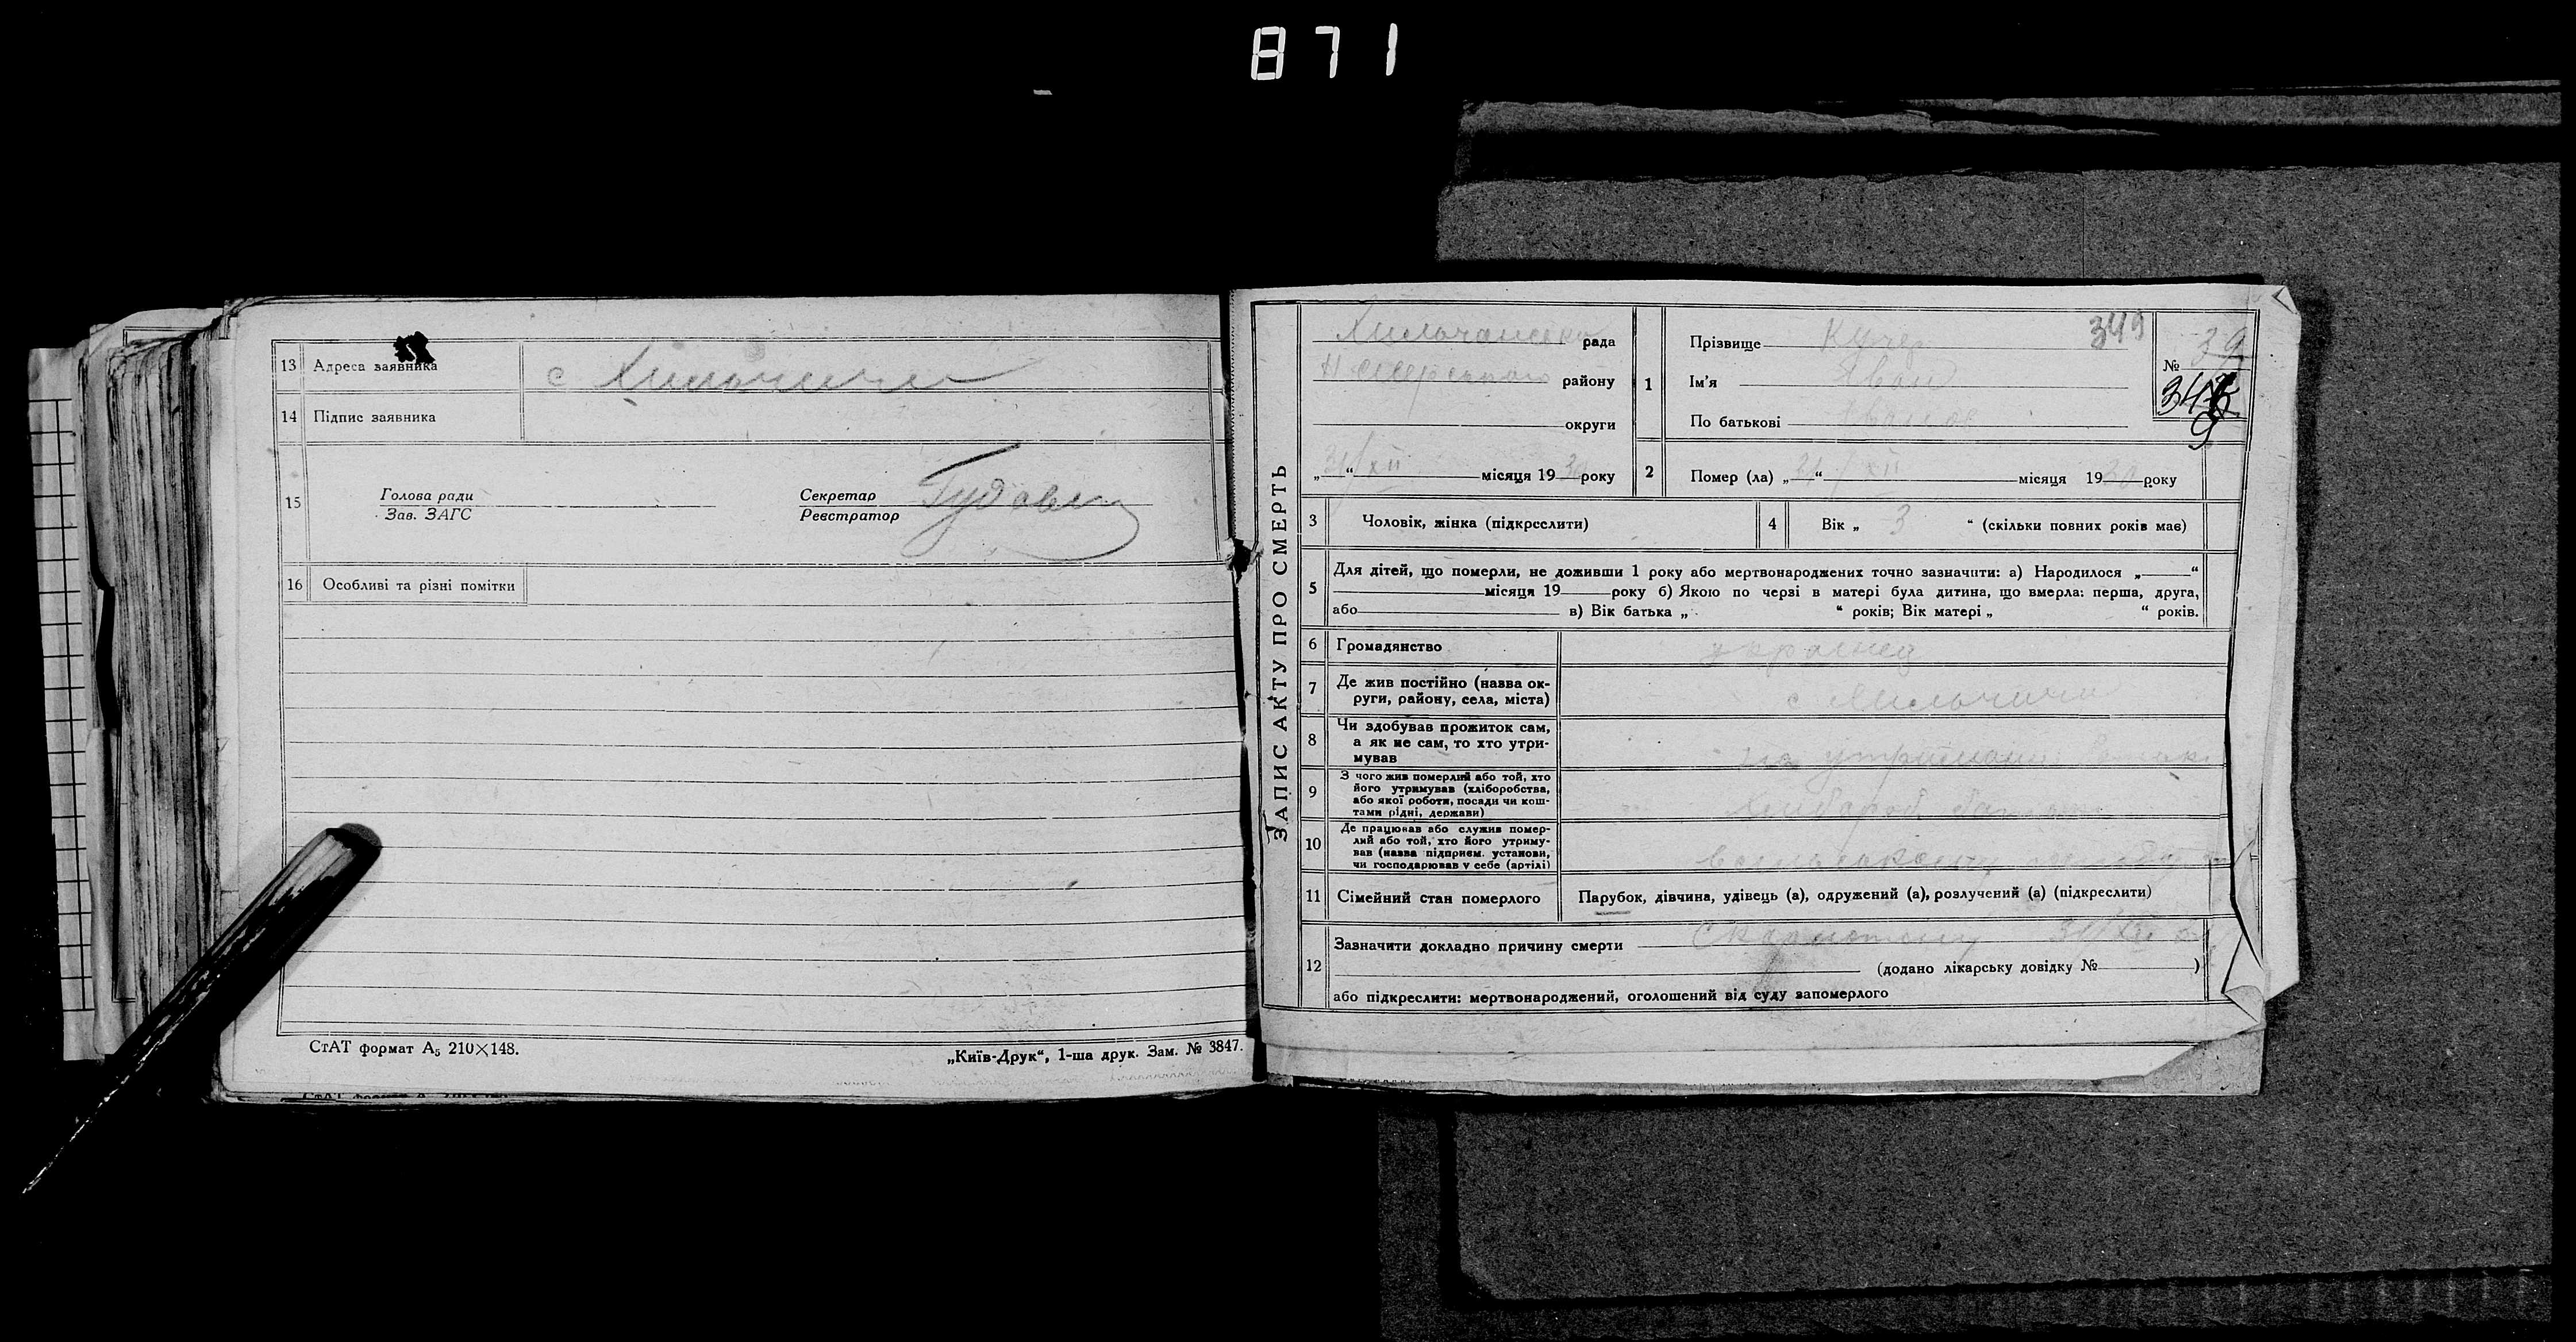 871
13 Адреса заявника с Хильчичи
14 Підпис заявника
15 Голова ради
Зав. ЗАГС
Секретар
Реєстратор
16 Особливі та різні помітки
СтАТ формат А₅ 210×148.
„Київ-Друк“, 1-ша друк. Зам. № 3847.
ЗАПИС АКТУ ПРО СМЕРТЬ
рада
району
округи
„ “ XII місяця 19 30 року
1 Прізвище Кучер
Ім'я Іван
По батькові
349
№ 39
2 Помер (ла) „ “ XII місяця 19 30 року
3 Чоловік, жінка (підкреслити)
4 Вік „ 3 “ (скільки повних років має)
5 Для дітей, що померли, не доживши 1 року або мертвонароджених точно зазначити: а) Народилося „ “
місяця 19 року б) Якою по черзі в матері була дитина, що вмерла: перша, друга,
або в) Вік батька „ “ років; Вік матері „ “ років.
6 Громадянство українец
7 Де жив постійно (назва ок-
руги, району, села, міста)
с Хильчичи
8 Чи здобував прожиток сам,
а як не сам, то хто утри-
мував
на
9 З чого жив померлий або той, хто
його утримував (хліборобства,
або якої роботи, посади чи кош-
тами рідні, держави)
10 Де працював або служив помер-
лий або той, хто його утриму-
вав (назва підприєм. установи,
чи господарював у себе (артілі)
11 Сімейний стан померлого Парубок, дівчина, удівець (а), одружений (а), розлучений (а) (підкреслити)
12 Зазначити докладно причину смерти
(додано лікарську довідку № )
або підкреслити: мертвонароджений, оголошений від суду запомерлого